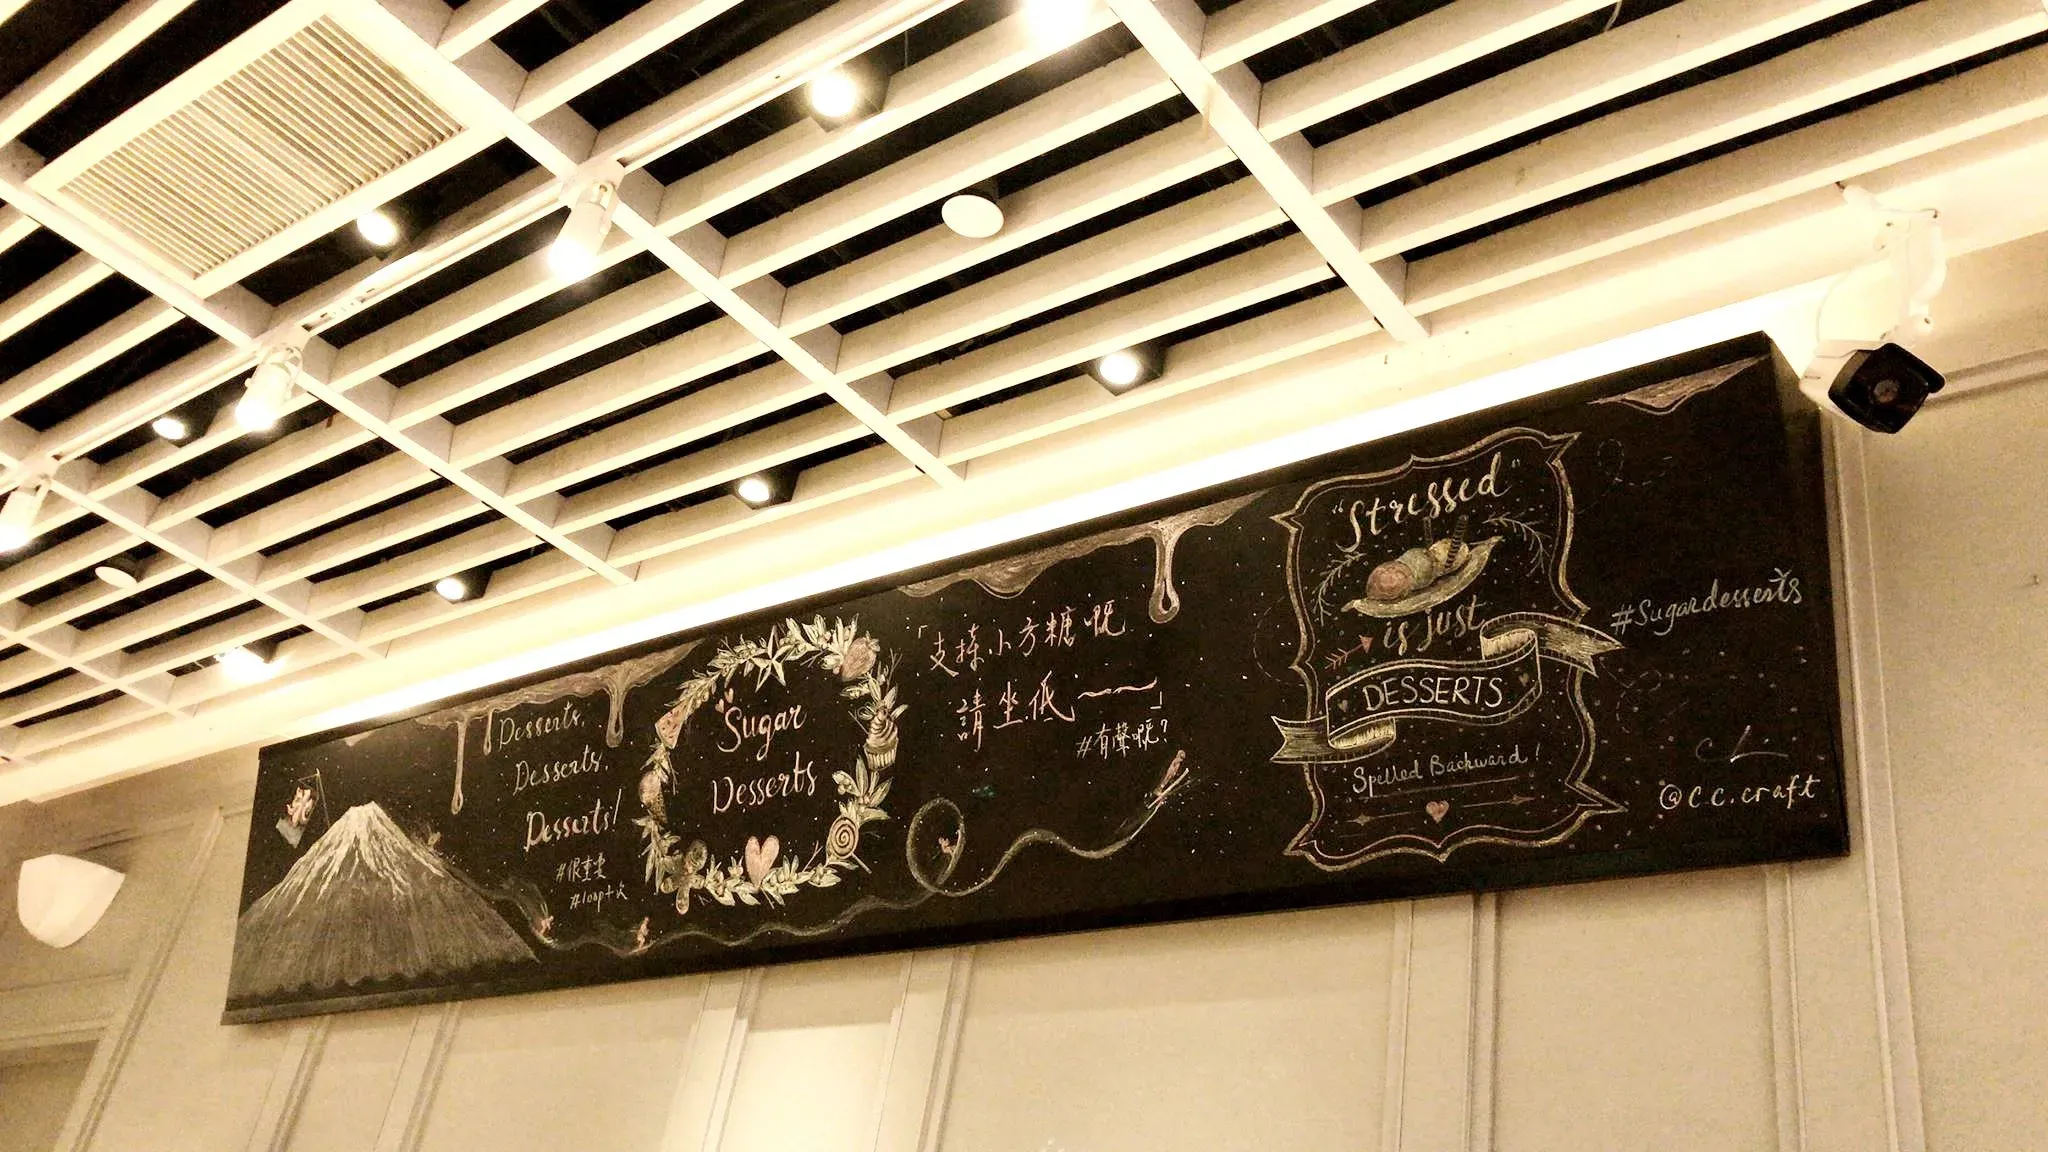 Desserts,
Desserts,
Desserts!
#很重要
#loop十次
Sugar
Desserts
「支持小方糖嘅
請坐低~~」
#有聲嘅?
"Stressed"
is just
DESSERTS
Spelled Backward!
#Sugardesserts
@c.c.craft